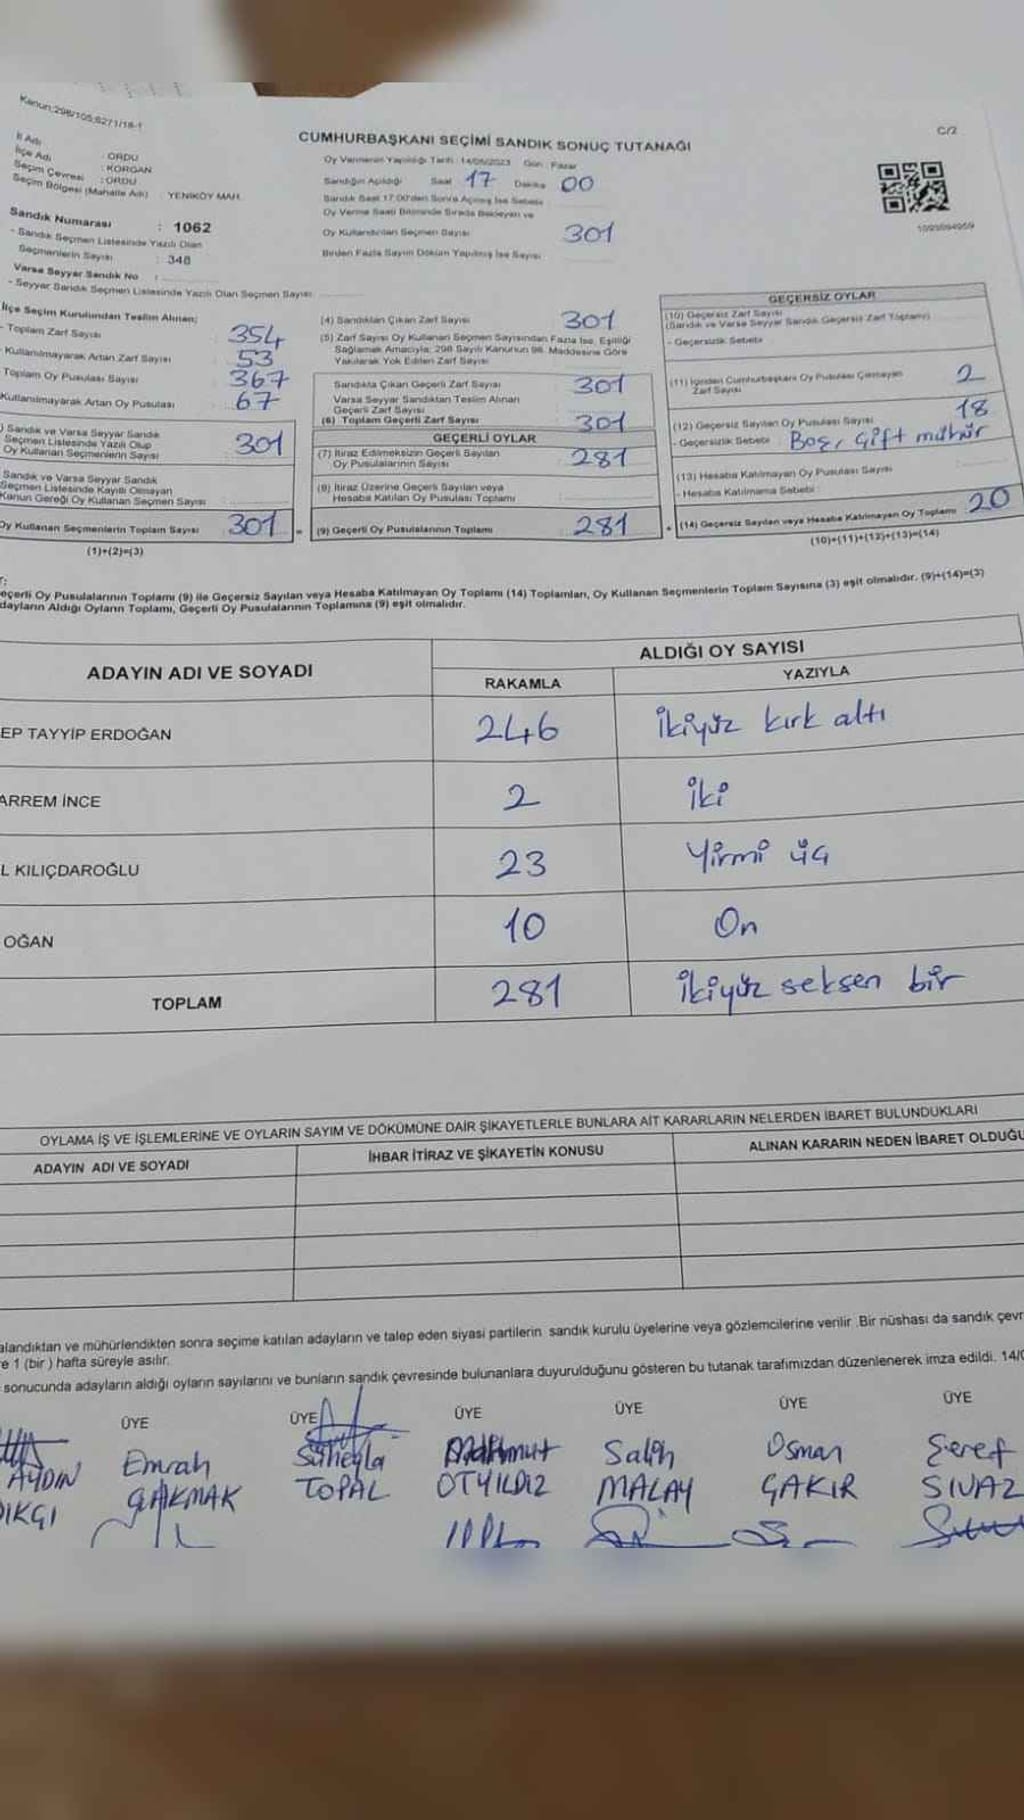 Kanun:298/105;6271/18-1
C/2
CUMHURBAŞKANI SEÇİMİ SANDIK SONUÇ TUTANAĞI
İl Adı : ORDU
İlçe Adı : KORGAN
Seçim Çevresi : ORDU
Seçim Bölgesi (Mahalle Adı) : YENİKÖY MAH.
Sandık Numarası : 1062
- Sandık Seçmen Listesinde Yazılı Olan
Seçmenlerin Sayısı : 348
Varsa Seyyar Sandık No :
- Seyyar Sandık Seçmen Listesinde Yazılı Olan Seçmen Sayısı:
Oy Vermenin Yapıldığı Tarih : 14/05/2023 Gün : Pazar
Sandığın Açıldığı Saat 17 Dakika 00
Sandık Saat 17:00'den Sonra Açılmış İse Sebebi
Oy Verme Saati Bitiminde Sırada Bekleyen ve
Oy Kullandırılan Seçmen Sayısı 301
Birden Fazla Sayım Döküm Yapılmış İse Sayısı
İlçe Seçim Kurulundan Teslim Alınan;
- Toplam Zarf Sayısı : 354
- Kullanılmayarak Artan Zarf Sayısı : 53
Toplam Oy Pusulası Sayısı : 367
Kullanılmayarak Artan Oy Pusulası : 67
) Sandık ve Varsa Seyyar Sandık
Seçmen Listesinde Yazılı Olup
Oy Kullanan Seçmenlerin Sayısı : 301
Sandık ve Varsa Seyyar Sandık
Seçmen Listesinde Kayıtlı Olmayan
Kanun Gereği Oy Kullanan Seçmen Sayısı
Oy Kullanan Seçmenlerin Toplam Sayısı 301
(1)+(2)=(3)
(4) Sandıktan Çıkan Zarf Sayısı 301
(5) Zarf Sayısı Oy Kullanan Seçmen Sayısından Fazla İse, Eşitliği
Sağlamak Amacıyla; 298 Sayılı Kanunun 98. Maddesine Göre
Yakılarak Yok Edilen Zarf Sayısı
Sandıkta Çıkan Geçerli Zarf Sayısı 301
Varsa Seyyar Sandıktan Teslim Alınan
Geçerli Zarf Sayısı
(6) Toplam Geçerli Zarf Sayısı 301
GEÇERLİ OYLAR
(7) İtiraz Edilmeksizin Geçerli Sayılan
Oy Pusulalarının Sayısı 281
(8) İtiraz Üzerine Geçerli Sayılan veya
Hesaba Katılan Oy Pusulası Toplamı
= (9) Geçerli Oy Pusulalarının Toplamı 281
GEÇERSİZ OYLAR
(10) Geçersiz Zarf Sayısı
(Sandık ve Varsa Seyyar Sandık Geçersiz Zarf Toplamı)
- Geçersizlik Sebebi
(11) İçinden Cumhurbaşkanı Oy Pusulası Çıkmayan
Zarf Sayısı 2
(12) Geçersiz Sayılan Oy Pusulası Sayısı 18
- Geçersizlik Sebebi : Boş, Çift mühür
(13) Hesaba Katılmayan Oy Pusulası Sayısı
- Hesaba Katılmama Sebebi
+ (14) Geçersiz Sayılan veya Hesaba Katılmayan Oy Toplamı 20
(10)+(11)+(12)+(13)=(14)
eçerli Oy Pusulalarının Toplamı (9) ile Geçersiz Sayılan veya Hesaba Katılmayan Oy Toplamı (14) Toplamları, Oy Kullanan Seçmenlerin Toplam Sayısına (3) eşit olmalıdır. (9)+(14)=(3)
dayların Aldığı Oyların Toplamı, Geçerli Oy Pusulalarının Toplamına (9) eşit olmalıdır.
ADAYIN ADI VE SOYADI ALDIĞI OY SAYISI
RAKAMLA YAZIYLA
EP TAYYİP ERDOĞAN 246 İkiyüz kırk altı
ARREM İNCE 2 İki
L KILIÇDAROĞLU 23 Yirmi üç
OĞAN 10 On
TOPLAM 281 İkiyüz seksen bir
OYLAMA İŞ VE İŞLEMLERİNE VE OYLARIN SAYIM VE DÖKÜMÜNE DAİR ŞİKAYETLERLE BUNLARA AİT KARARLARIN NELERDEN İBARET BULUNDUKLARI
ADAYIN ADI VE SOYADI İHBAR İTİRAZ VE ŞİKAYETİN KONUSU ALINAN KARARIN NEDEN İBARET OLDUĞU
alandıktan ve mühürlendikten sonra seçime katılan adayların ve talep eden siyasi partilerin sandık kurulu üyelerine veya gözlemcilerine verilir .Bir nüshası da sandık çevr
e 1 (bir ) hafta süreyle asılır.
sonucunda adayların aldığı oyların sayılarını ve bunların sandık çevresinde bulunanlara duyurulduğunu gösteren bu tutanak tarafımızdan düzenlenerek imza edildi. 14/0
ÜYE ÜYE ÜYE ÜYE ÜYE ÜYE
AYDIN Emrah Süheyla Mahmut Salih Osman Şeref
DIKÇI ÇAKMAK TOPAL OTYILDIZ MALAY ÇAKIR SIVAZ